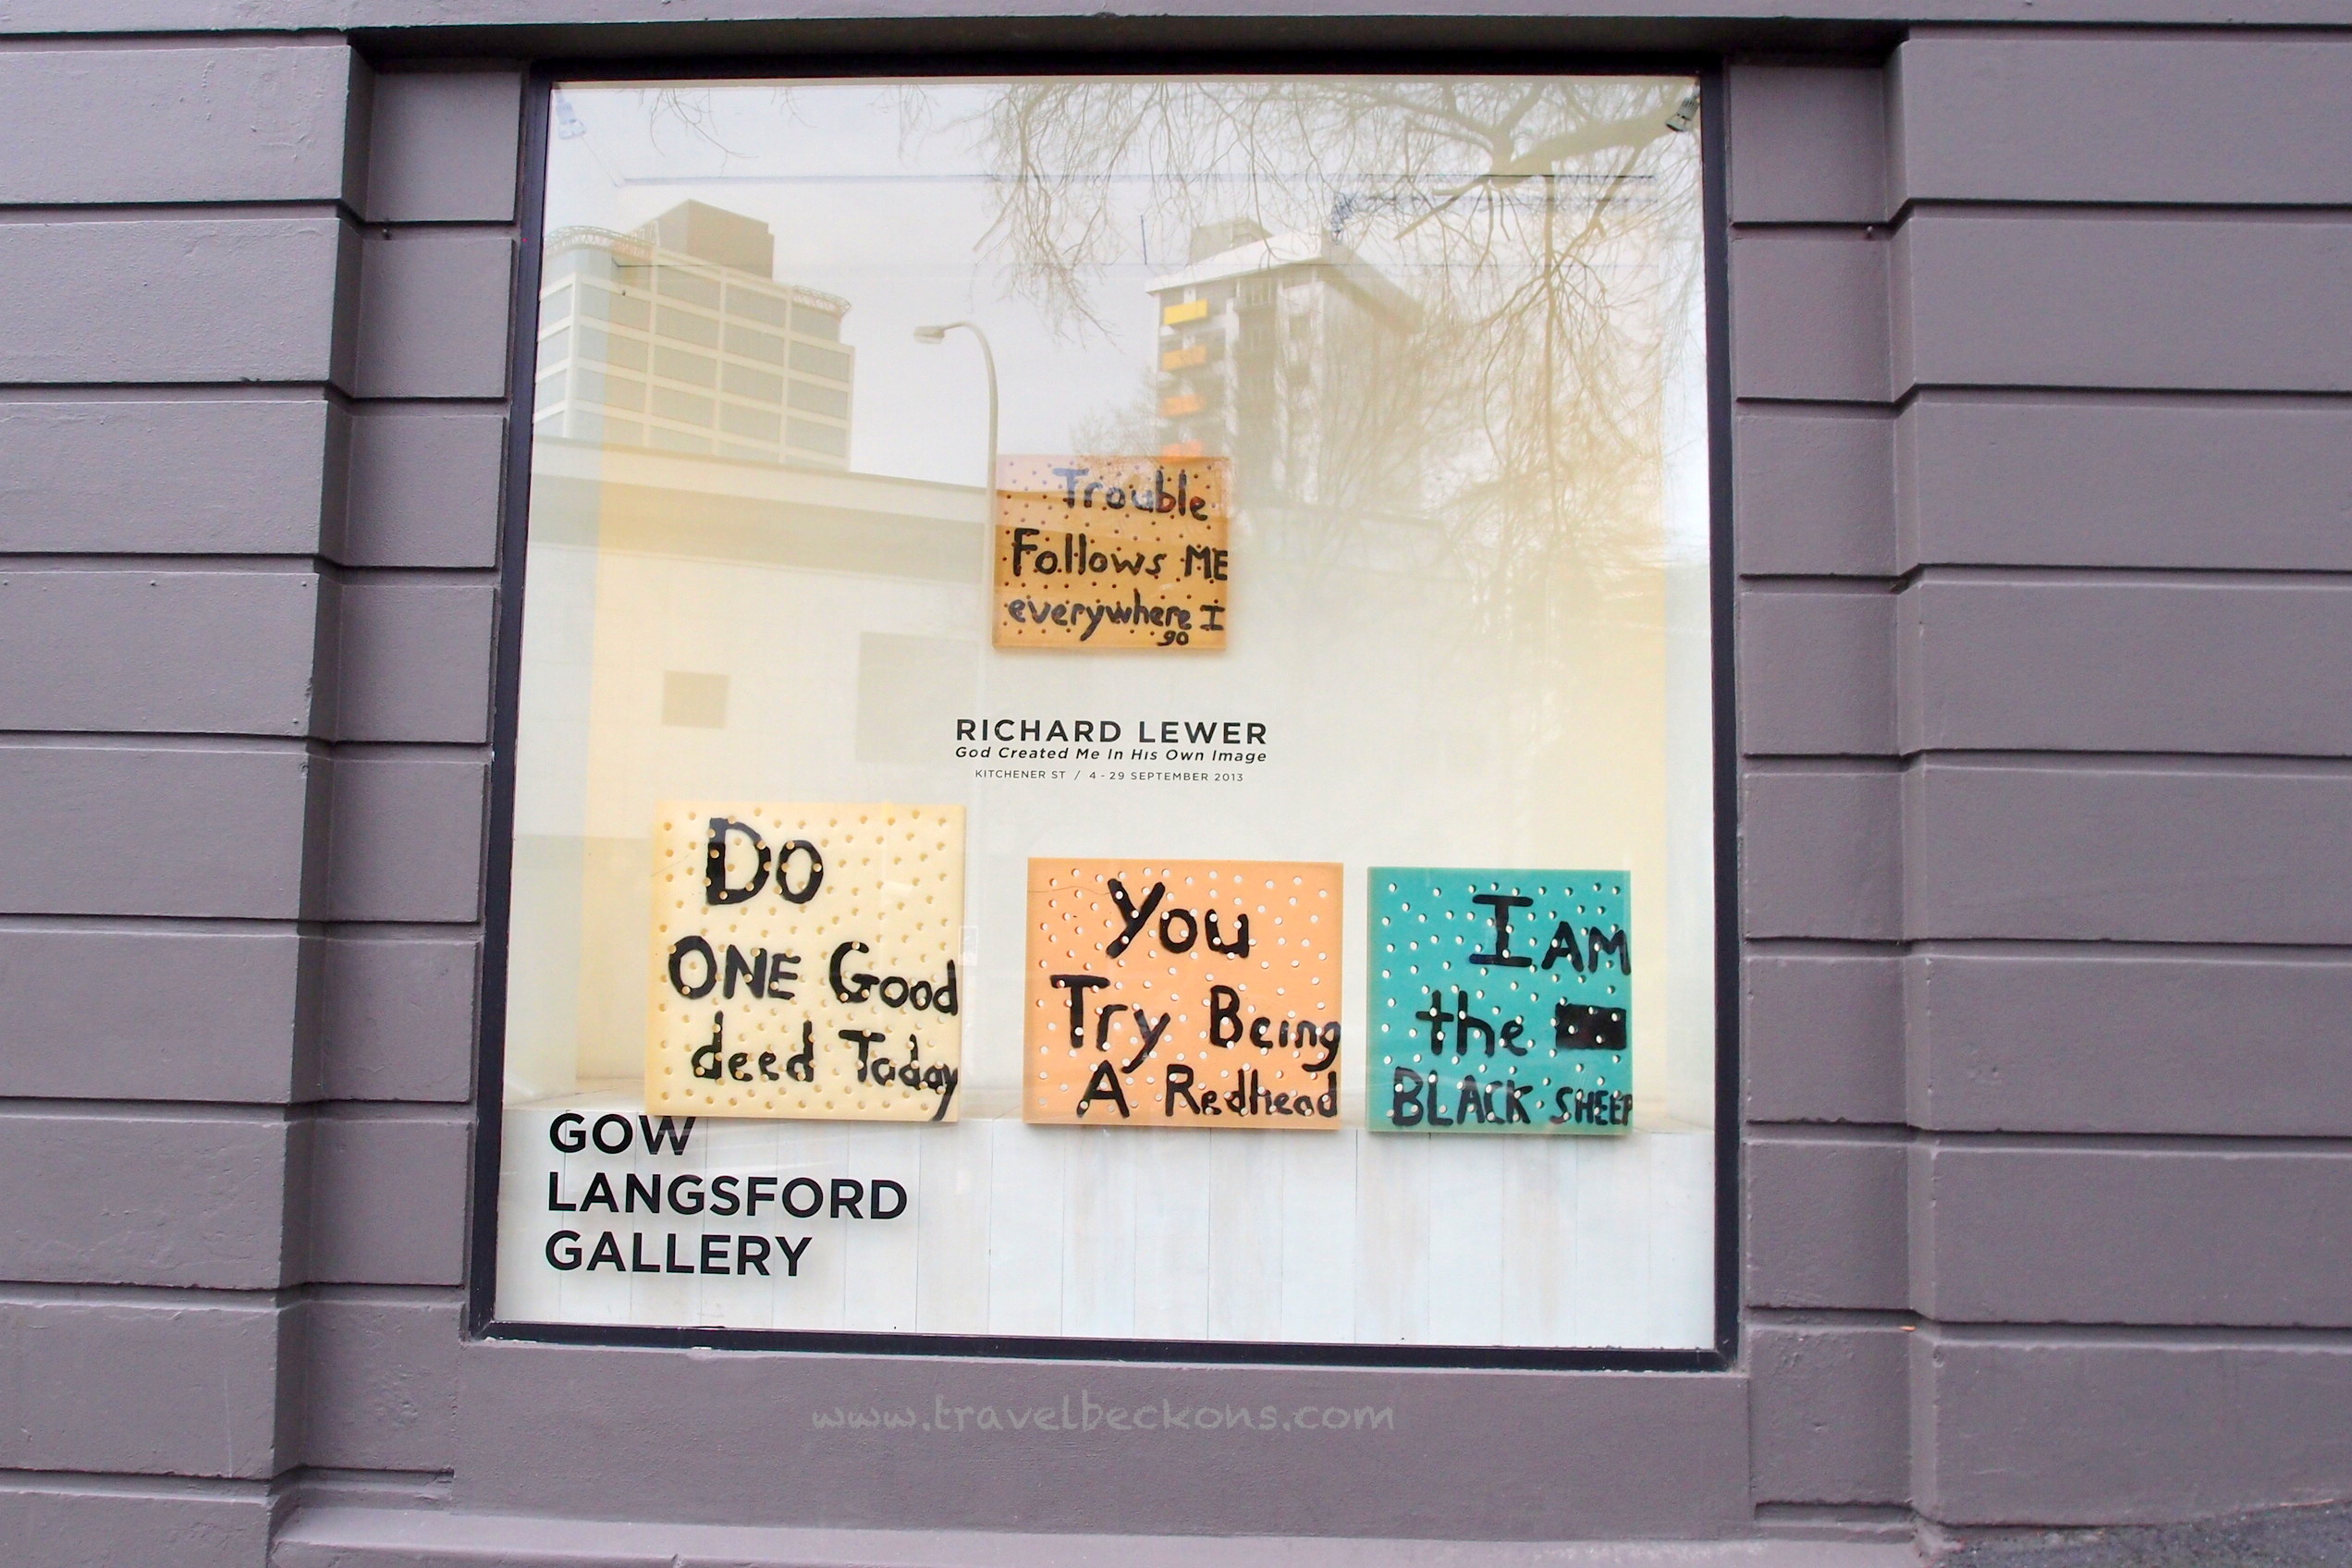 Trouble
Follows ME
everywhere I
go
RICHARD LEWER
God Created Me In His Own Image
KITCHENER ST / 4 - 29 SEPTEMBER 2013
Do
ONE Good
deed Today
You
Try Being
A Redhead
I AM
the
BLACK SHEEP
GOW
LANGSFORD
GALLERY
www.travelbeckons.com